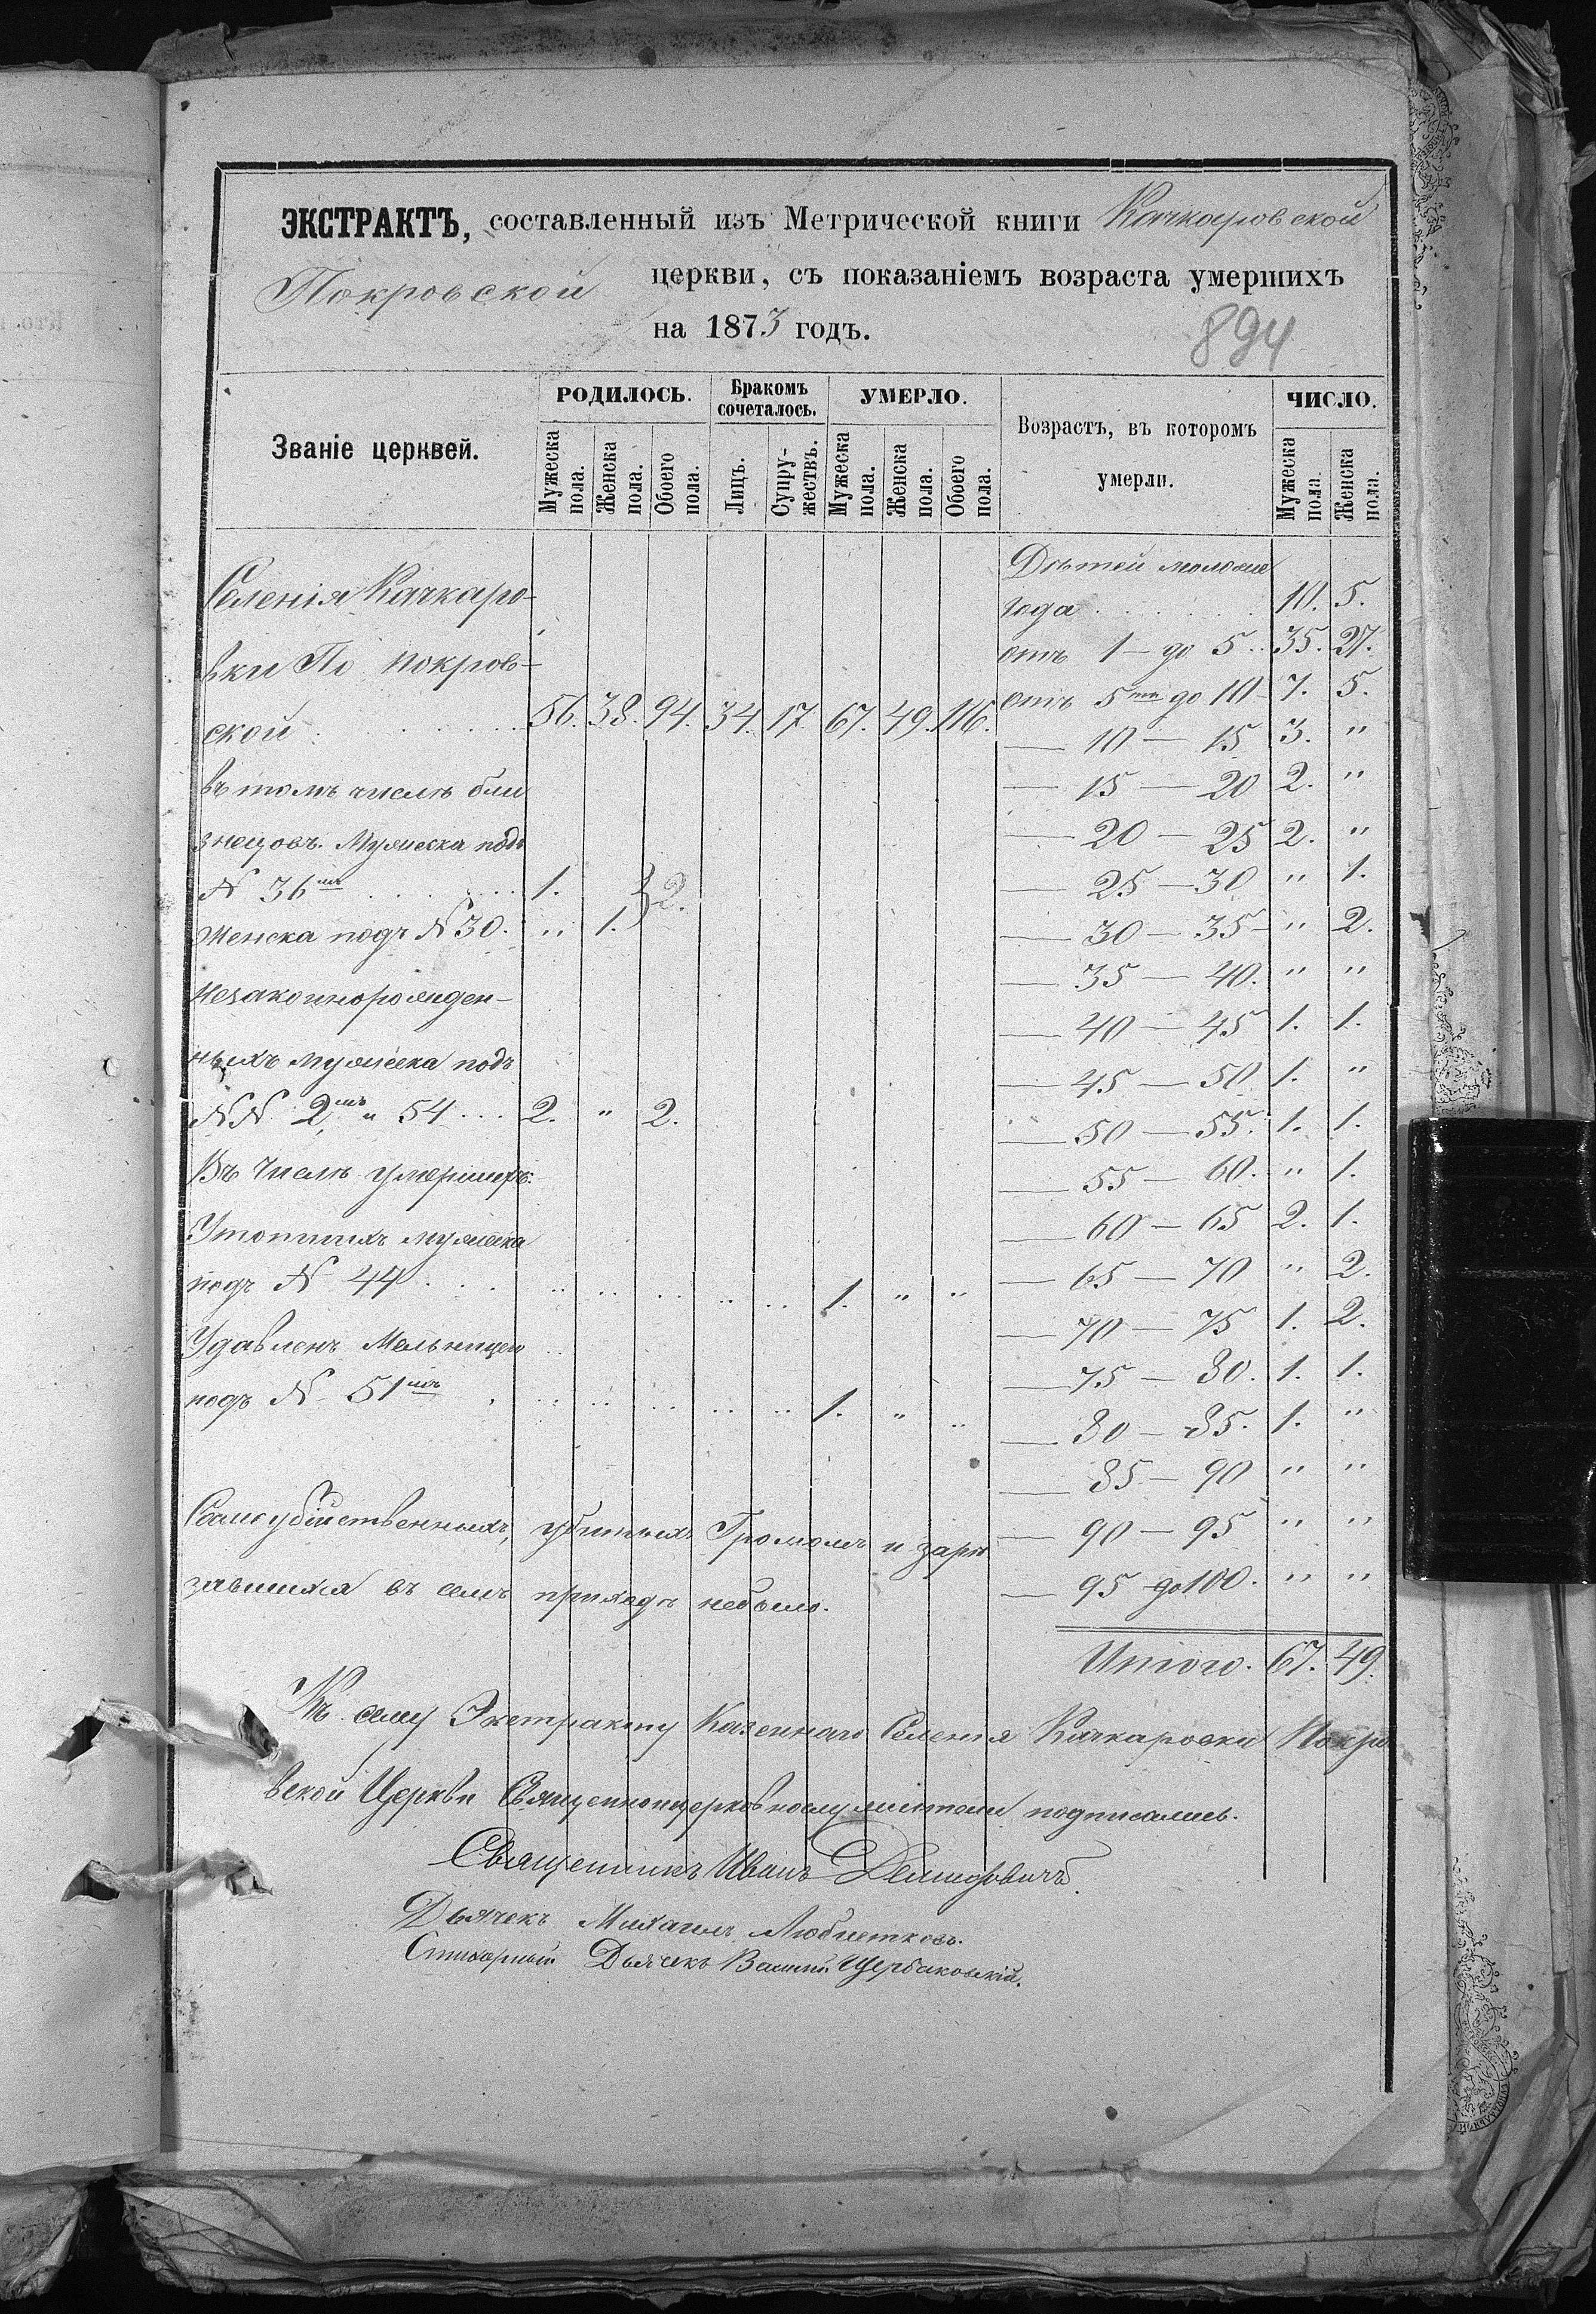 ЭКСТРАКТЪ, составленный изъ Метрической книги Качкаровской
Покровской церкви, съ показаніемъ возраста умершихъ
на 1873 годъ.
894
Званіе церквей.
РОДИЛОСЬ.
Бракомъ сочеталось.
УМЕРЛО.
Возрастъ, въ которомъ умерли.
ЧИСЛО.
Мужеска пола.
Женска пола.
Обоего пола.
Лицъ.
Супружествъ.
Мужеска пола.
Женска пола.
Обоего пола.
Мужеска пола
Женска пола.
Селенія Качкаро-
вки По покров-
ской 56. 38. 94. 34. 17. 67. 49. 116.
въ томъ числѣ бли
знецовъ. Мужеска подъ
N 36мъ 1. } 2.
Женска подъ N 30. " 1.
Незаконнорожден-
ныхъ мужеска подъ
NN 2мъ и 54 ... 2. " 2.
Въ числѣ умершихъ:
Утопшихъ мужеска
подъ N 44 . . . " " " " " 1. " "
Удавленъ Мельницею
подъ N 51мъ . " " " " " 1. " "
Самоубійственныхъ, убитыхъ Громомъ и зарѣ
завшихся въ семъ приходѣ небыло.
Дѣтей моложе
года . . . 10. 5.
отъ 1 — до 5 .. 35. 27.
отъ 5ти до 10 — 7. 5.
— 10 — 15 3. "
— 15 — 20 2. "
— 20 — 25 2. "
— 25 — 30 " 1.
— 30 — 35 — " 2.
— 35 — 40. " "
— 40 — 45 1. 1.
— 45 — 50 1. "
— 50 — 55. 1. 1.
— 55 — 60. " 1.
— 60 — 65 2. 1.
— 65 — 70 " 2.
— 70 — 75 1. 2.
— 75 — 80. 1. 1.
— 80 — 85. 1. "
— 85 — 90 " "
— 90 — 95 " "
— 95 до 100. " "
Итого. 67. 49.
Къ сему Экстракту Казеннаго Селенія Качкаровки Покро
вской Церкви Священноцерковнослужители подписались.
Священникъ Иванъ
Дьячекъ Михаилъ
Стихарный Дьячекъ Щербаковскій.